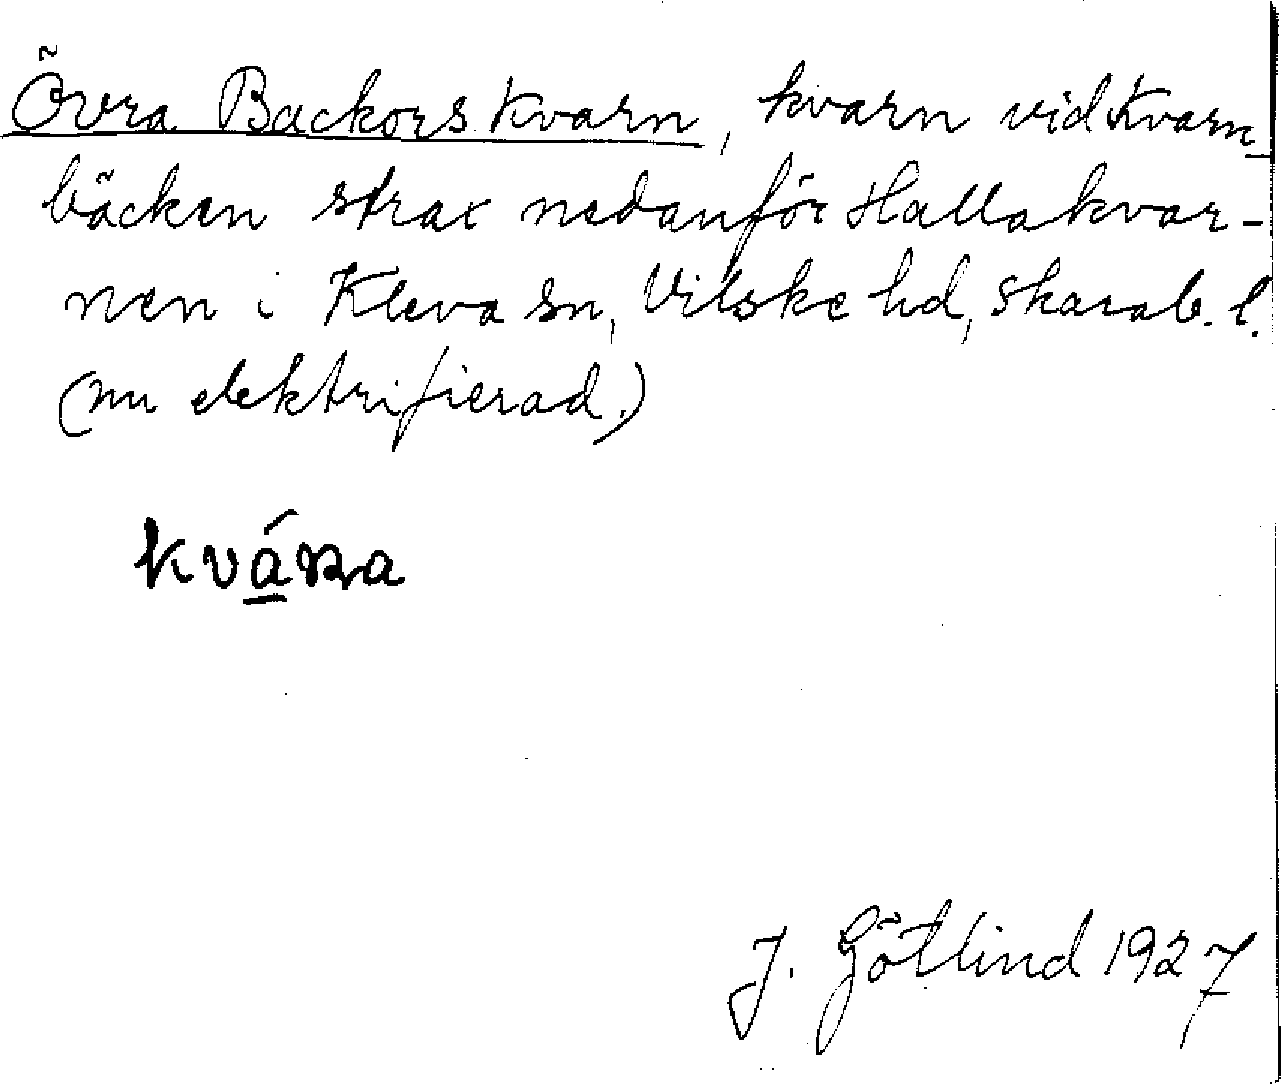 Övra Backors kvarn, kvarn vid Kvarn-
bäcken strax nedanför Hallakvar-
nen i Kleva sn, Vilske hd, Skarab. l.
(nu elektrifierad.)
J. Götlind 1927